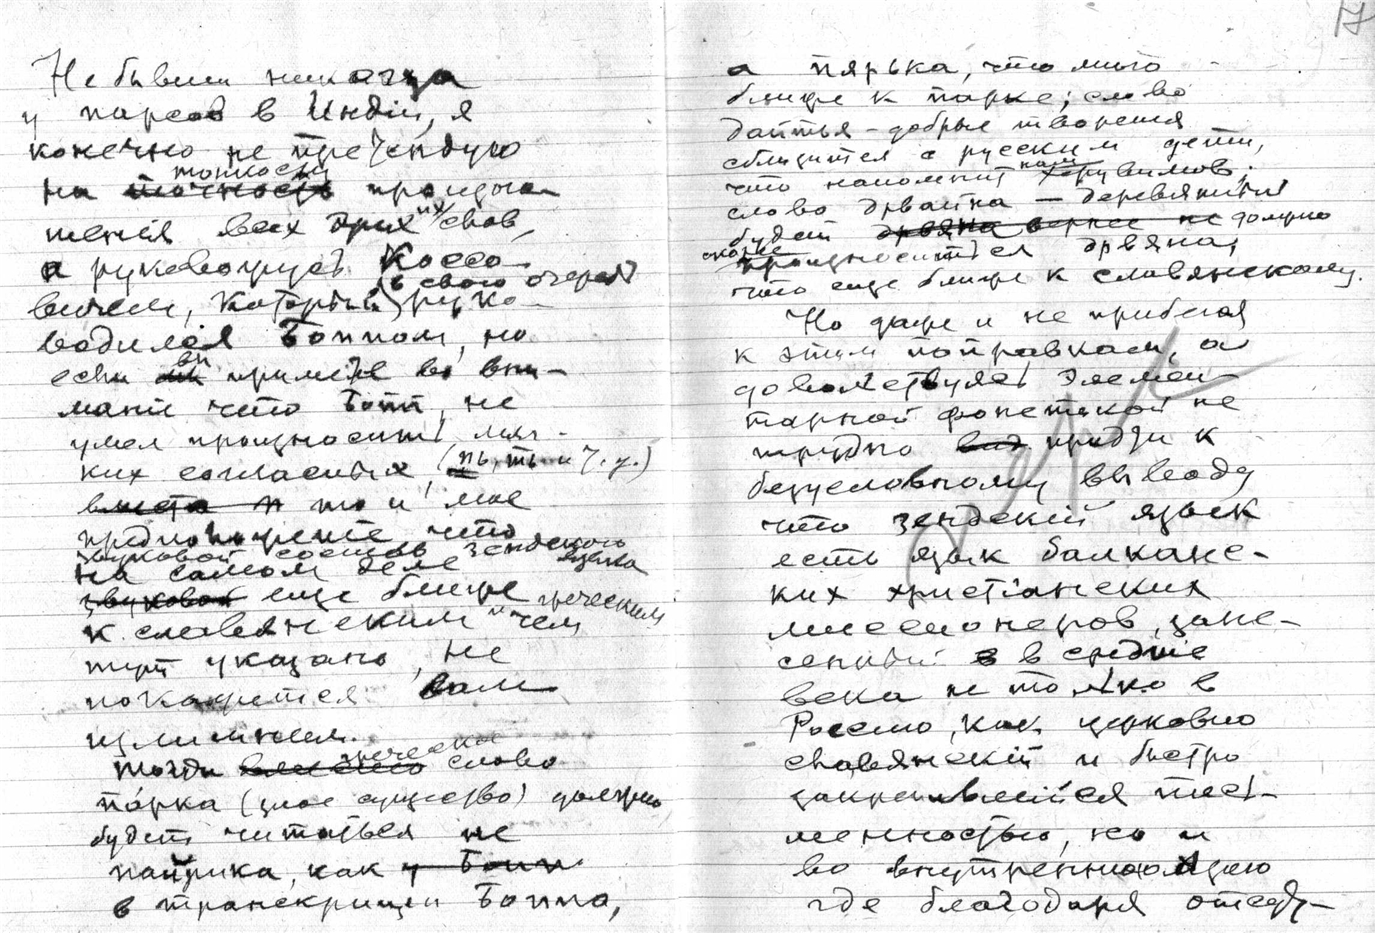 Не бывши никогда
у парсов в Индіи, я
конечно не претендую
на точность тонкость произно-
шенія всех этих их слов,
а руководуюсь Коссо-
вичем, который в свою очередь руко-
водился Боппом, но
если мы вы примете во вни-
маніе что Бопп не
умел произносить мяг-
ких согласных (пь, ть и т. д.)
вместо то и мое
предположеніе что
звуковой состав зендского языка
на самом деле
звуковой еще ближе
к славянским и греческим чем
тут указано, не
покажется вам
излишнем.
Тогда греческое слово
па́рка (злое существо) должно
будет читаться не
пайрика, как у Бопп
в транскрипціи Боппа,
17
а пярька, что много
ближе к парке; слово
дайтья - добрые творенія
сблизится с русским дети,
что напомнит нам херувимов;
слово дрвайна — деревянный
будет дрвяна вернее не должно
скорее произносится дрвяна,
что еще ближе к славянскому.
Но даже и не прибегая
к этим поправкам, а
довольствуясь элемен-
тарной фонетикой не
трудно вид придти к
безусловному выводу
что зендский язык
есть язык балканс-
ких христіанских
миссіонеров, зане-
сенный в в средніе
века не только в
Россию, как церковно
славянскій и быстро
закрепившійся пись-
менностью, но и
во внутреннюю Азію
где благодаря отсут-